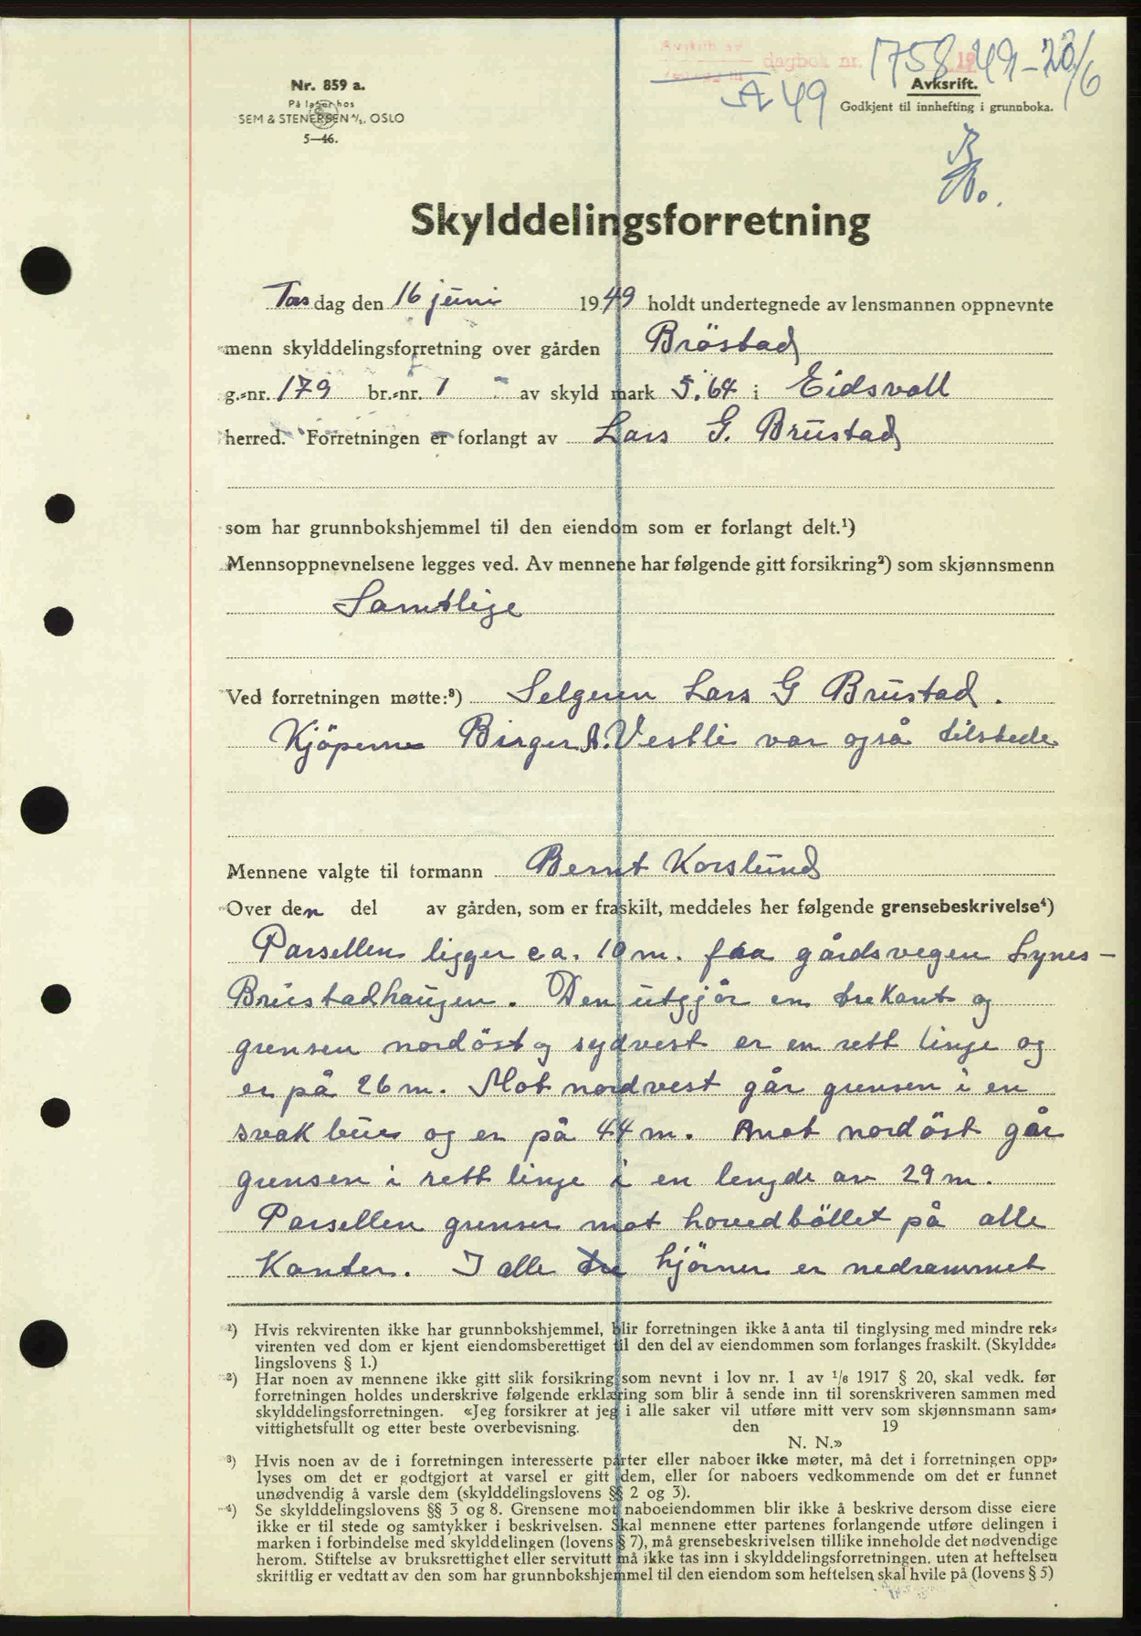 Avskrift av
dagbok nr. 1758 1949 - 20/6
A 49
Nr. 859 a.
På lager hos
SEM & STENERSEN A/S, OSLO
5—46.
Avksrift.
Godkjent til innhefting i grunnboka.
Skylddelingsforretning
Torsdag den 16 juni 1949 holdt undertegnede av lensmannen oppnevnte
menn skylddelingsforretning over gården Bröstad
g.-nr. 179 br.-nr. 1 av skyld mark 5.64 i Eidsvoll
herred. Forretningen er forlangt av Lars G. Brustad
som har grunnbokshjemmel til den eiendom som er forlangt delt.¹)
Mennsoppnevnelsene legges ved. Av mennene har følgende gitt forsikring²) som skjønnsmenn
Samtlige
Ved forretningen møtte:³) Selgeren Lars G Brustad.
Kjöperne Birger A. Vestli var også tilstede
Mennene valgte til formann Bernt Korslund
Over den del av gården, som er fraskilt, meddeles her følgende grensebeskrivelse⁴)
Parsellen ligger ca. 10 m. fra gårdsvegen Lynes-
Brustadhaugen. Den utgjör en trekant og
grensen nordöst og sydvest er en rett linje og
er på 26 m. Mot nordvest går grensen i en
svak bue og er på 44 m. Mot nordöst går
grensen i rett linje i en lengde av 29 m.
Parsellen grenser mot hovedböllet på alle
Kanter. I alle tre hjörner er nedrammet
¹) Hvis rekvirenten ikke har grunnbokshjemmel, blir forretningen ikke å anta til tinglysing med mindre rek-
virenten ved dom er kjent eiendomsberettiget til den del av eiendommen som forlanges fraskilt. (Skyldde-
lingslovens § 1.)
²) Har noen av mennene ikke gitt slik forsikring som nevnt i lov nr. 1 av 1/6 1917 § 20, skal vedk. før
forretningen holdes underskrive følgende erklæring som blir å sende inn til sorenskriveren sammen med
skylddelingsforretningen. «Jeg forsikrer at jeg i alle saker vil utføre mitt verv som skjønnsmann sam-
vittighetsfullt og etter beste overbevisning. den 19
N. N.»
³) Hvis noen av de i forretningen interesserte parter eller naboer ikke møter, må det i forretningen opp-
lyses om det er godtgjort at varsel er gitt dem, eller for naboers vedkommende om det er funnet
unødvendig å varsle dem (skylddelingslovens §§ 2 og 3).
⁴) Se skylddelingslovens §§ 3 og 8. Grensene mot naboeiendommen blir ikke å beskrive dersom disse eiere
ikke er til stede og samtykker i beskrivelsen. Skal mennene etter partenes forlangende utføre delingen i
marken i forbindelse med skylddelingen (lovens § 7), må grensebeskrivelsen tillike inneholde det nødvendige
herom. Stiftelse av bruksrettighet eller servitutt må ikke tas inn i skylddelingsforretningen, uten at heftelsen
skriftlig er vedtatt av den som har grunnbokshjemmel til den eiendom som heftelsen skal hvile på (lovens § 5)